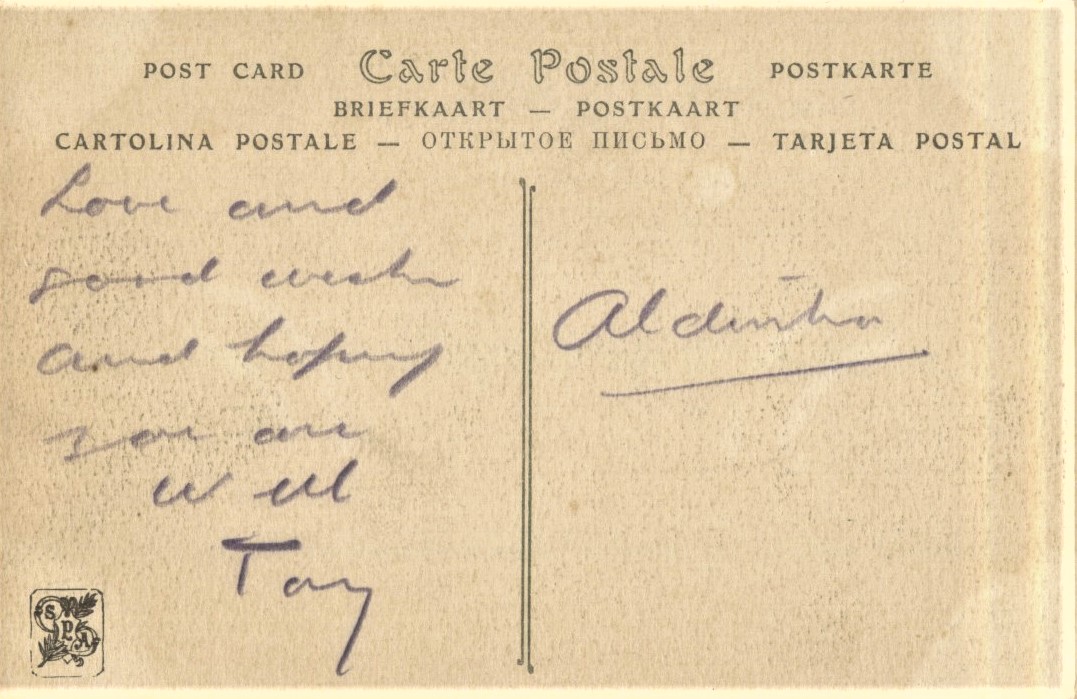 POST CARD Carte Postale POSTKARTE
BRIEFKAART — POSTKAART
CARTOLINA POSTALE — ОТКРЫТОЕ ПИСЬМО — TARJETA POSTAL
Love and
good wishes
and hoping
you are
well
SPA